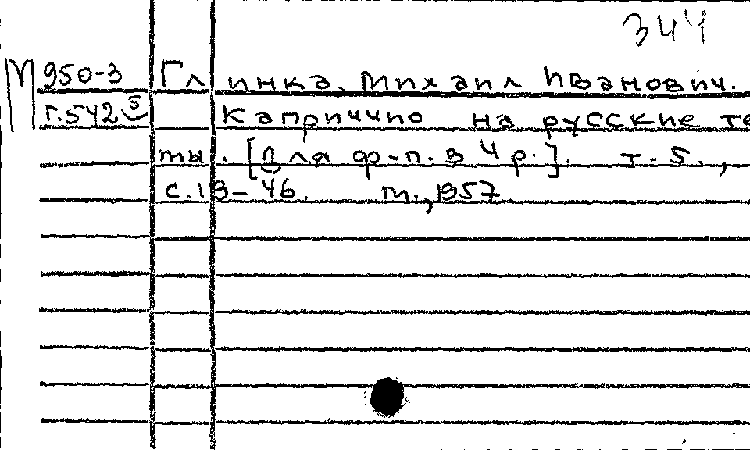 344
М 950-3 Глинка, Михаил Иванович.
Г.542 5 Каприччио на русские те
мы. [Для ф-п. в 4 р.]. т. 5.,
с. 13-46. М., 1957.